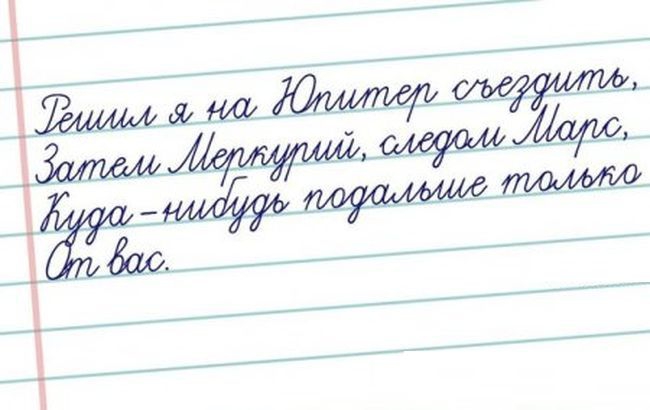 Решил я на Юпитер съездить,
Затем Меркурий, следом Марс,
Куда-нибудь подальше только
От вас.